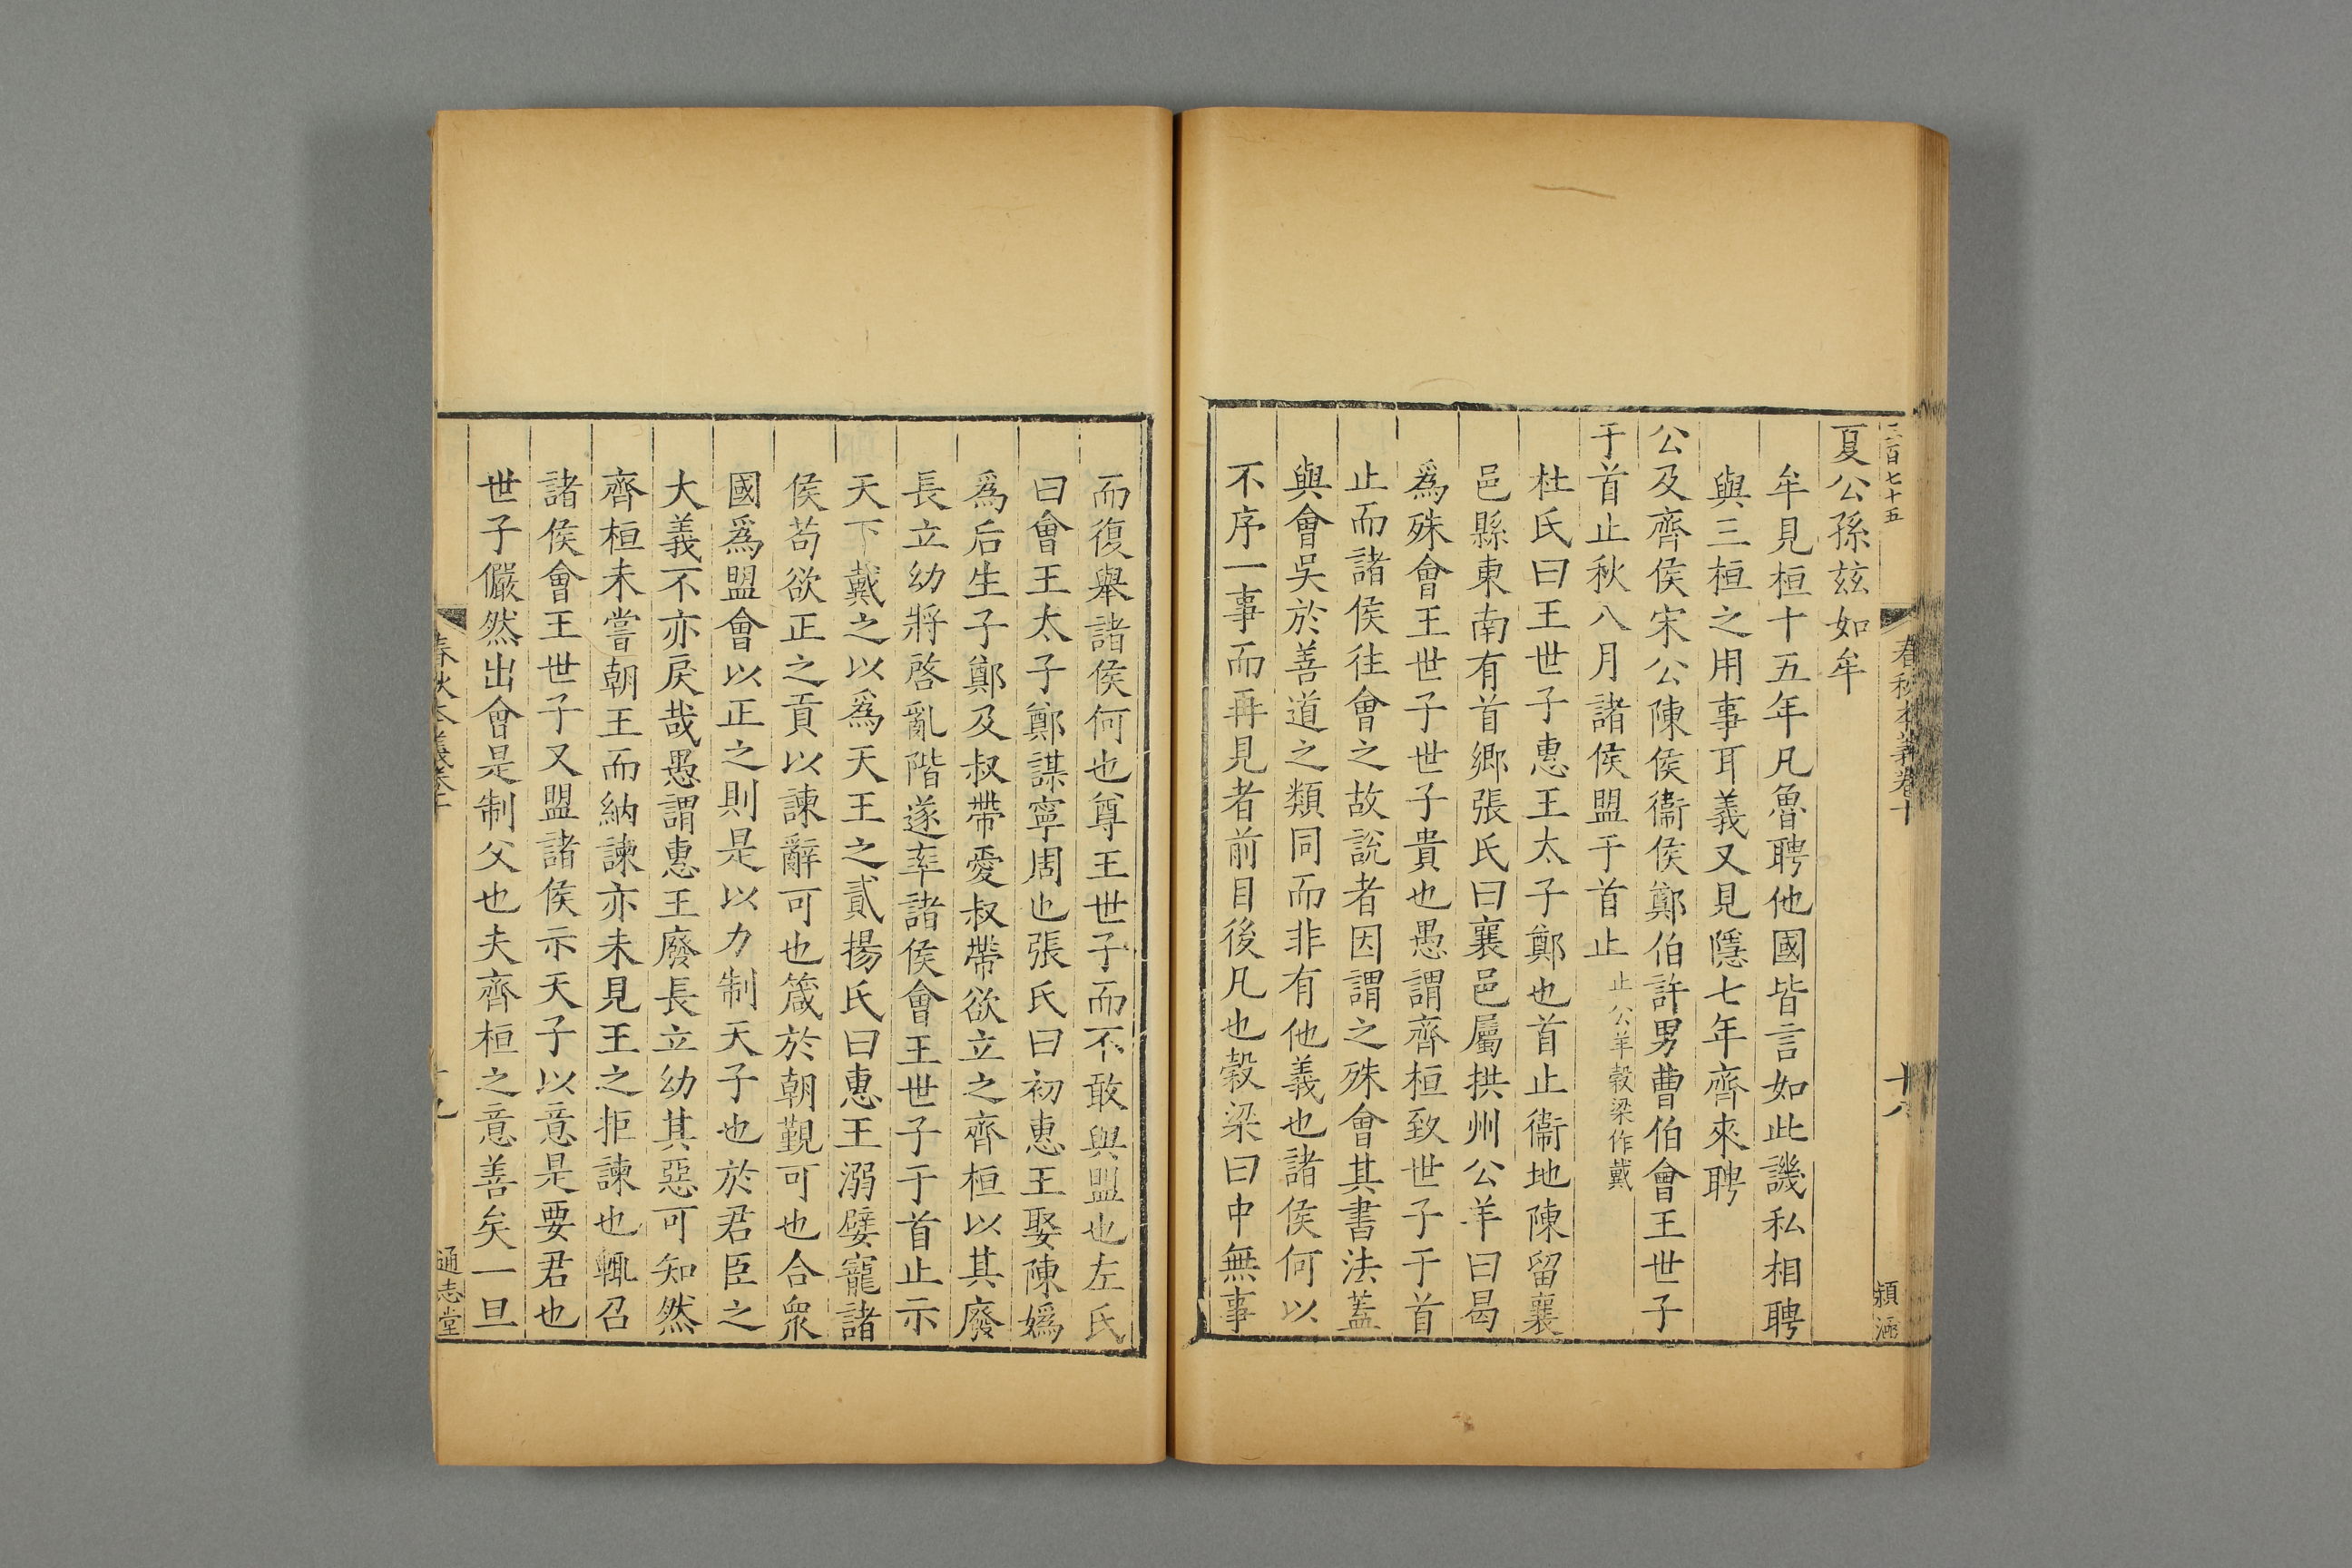 三百七十五
春秋本義卷十
十八
夏公孫茲如牟
牟見桓十五年凡魯聘他國皆言如此譏私相聘
與三桓之用事耳義又見隱七年齊來聘
公及齊侯宋公陳侯衞侯鄭伯許男曹伯會王世子
于首止秋八月諸侯盟于首止止公羊穀梁作戴
杜氏曰王世子惠王太子鄭也首止衞地陳留襄
邑縣東南有首鄉張氏曰襄邑屬拱州公羊曰曷
爲殊會王世子世子貴也愚謂齊桓致世子于首
止而諸侯往會之故說者因謂之殊會其書法蓋
與會吳於善道之類同而非有他義也諸侯何以
不序一事而再見者前目後凡也穀梁曰中無事
而復舉諸侯何也尊王世子而不敢與盟也左氏
曰會王太子鄭謀寧周也張氏曰初惠王娶陳媯
爲后生子鄭及叔帶愛叔帶欲立之齊桓以其廢
長立幼將啓亂階遂率諸侯會王世子于首止示
天下戴之以爲天王之貳揚氏曰惠王溺嬖寵諸
侯苟欲正之貢以諫辭可也箴於朝覲可也合衆
國爲盟會以正之則是以力制天子也於君臣之
大義不亦戾哉愚謂惠王廢長立幼其惡可知然
齊桓未嘗朝王而納諫亦未見王之拒諫也輒召
諸侯會王世子又盟諸侯示天子以意是要君也
世子儼然出會是制父也夫齊桓之意善矣一旦
春秋本義卷十
十九
通志堂